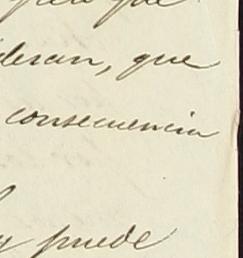 que
ideran, que
consecuencia
y puede